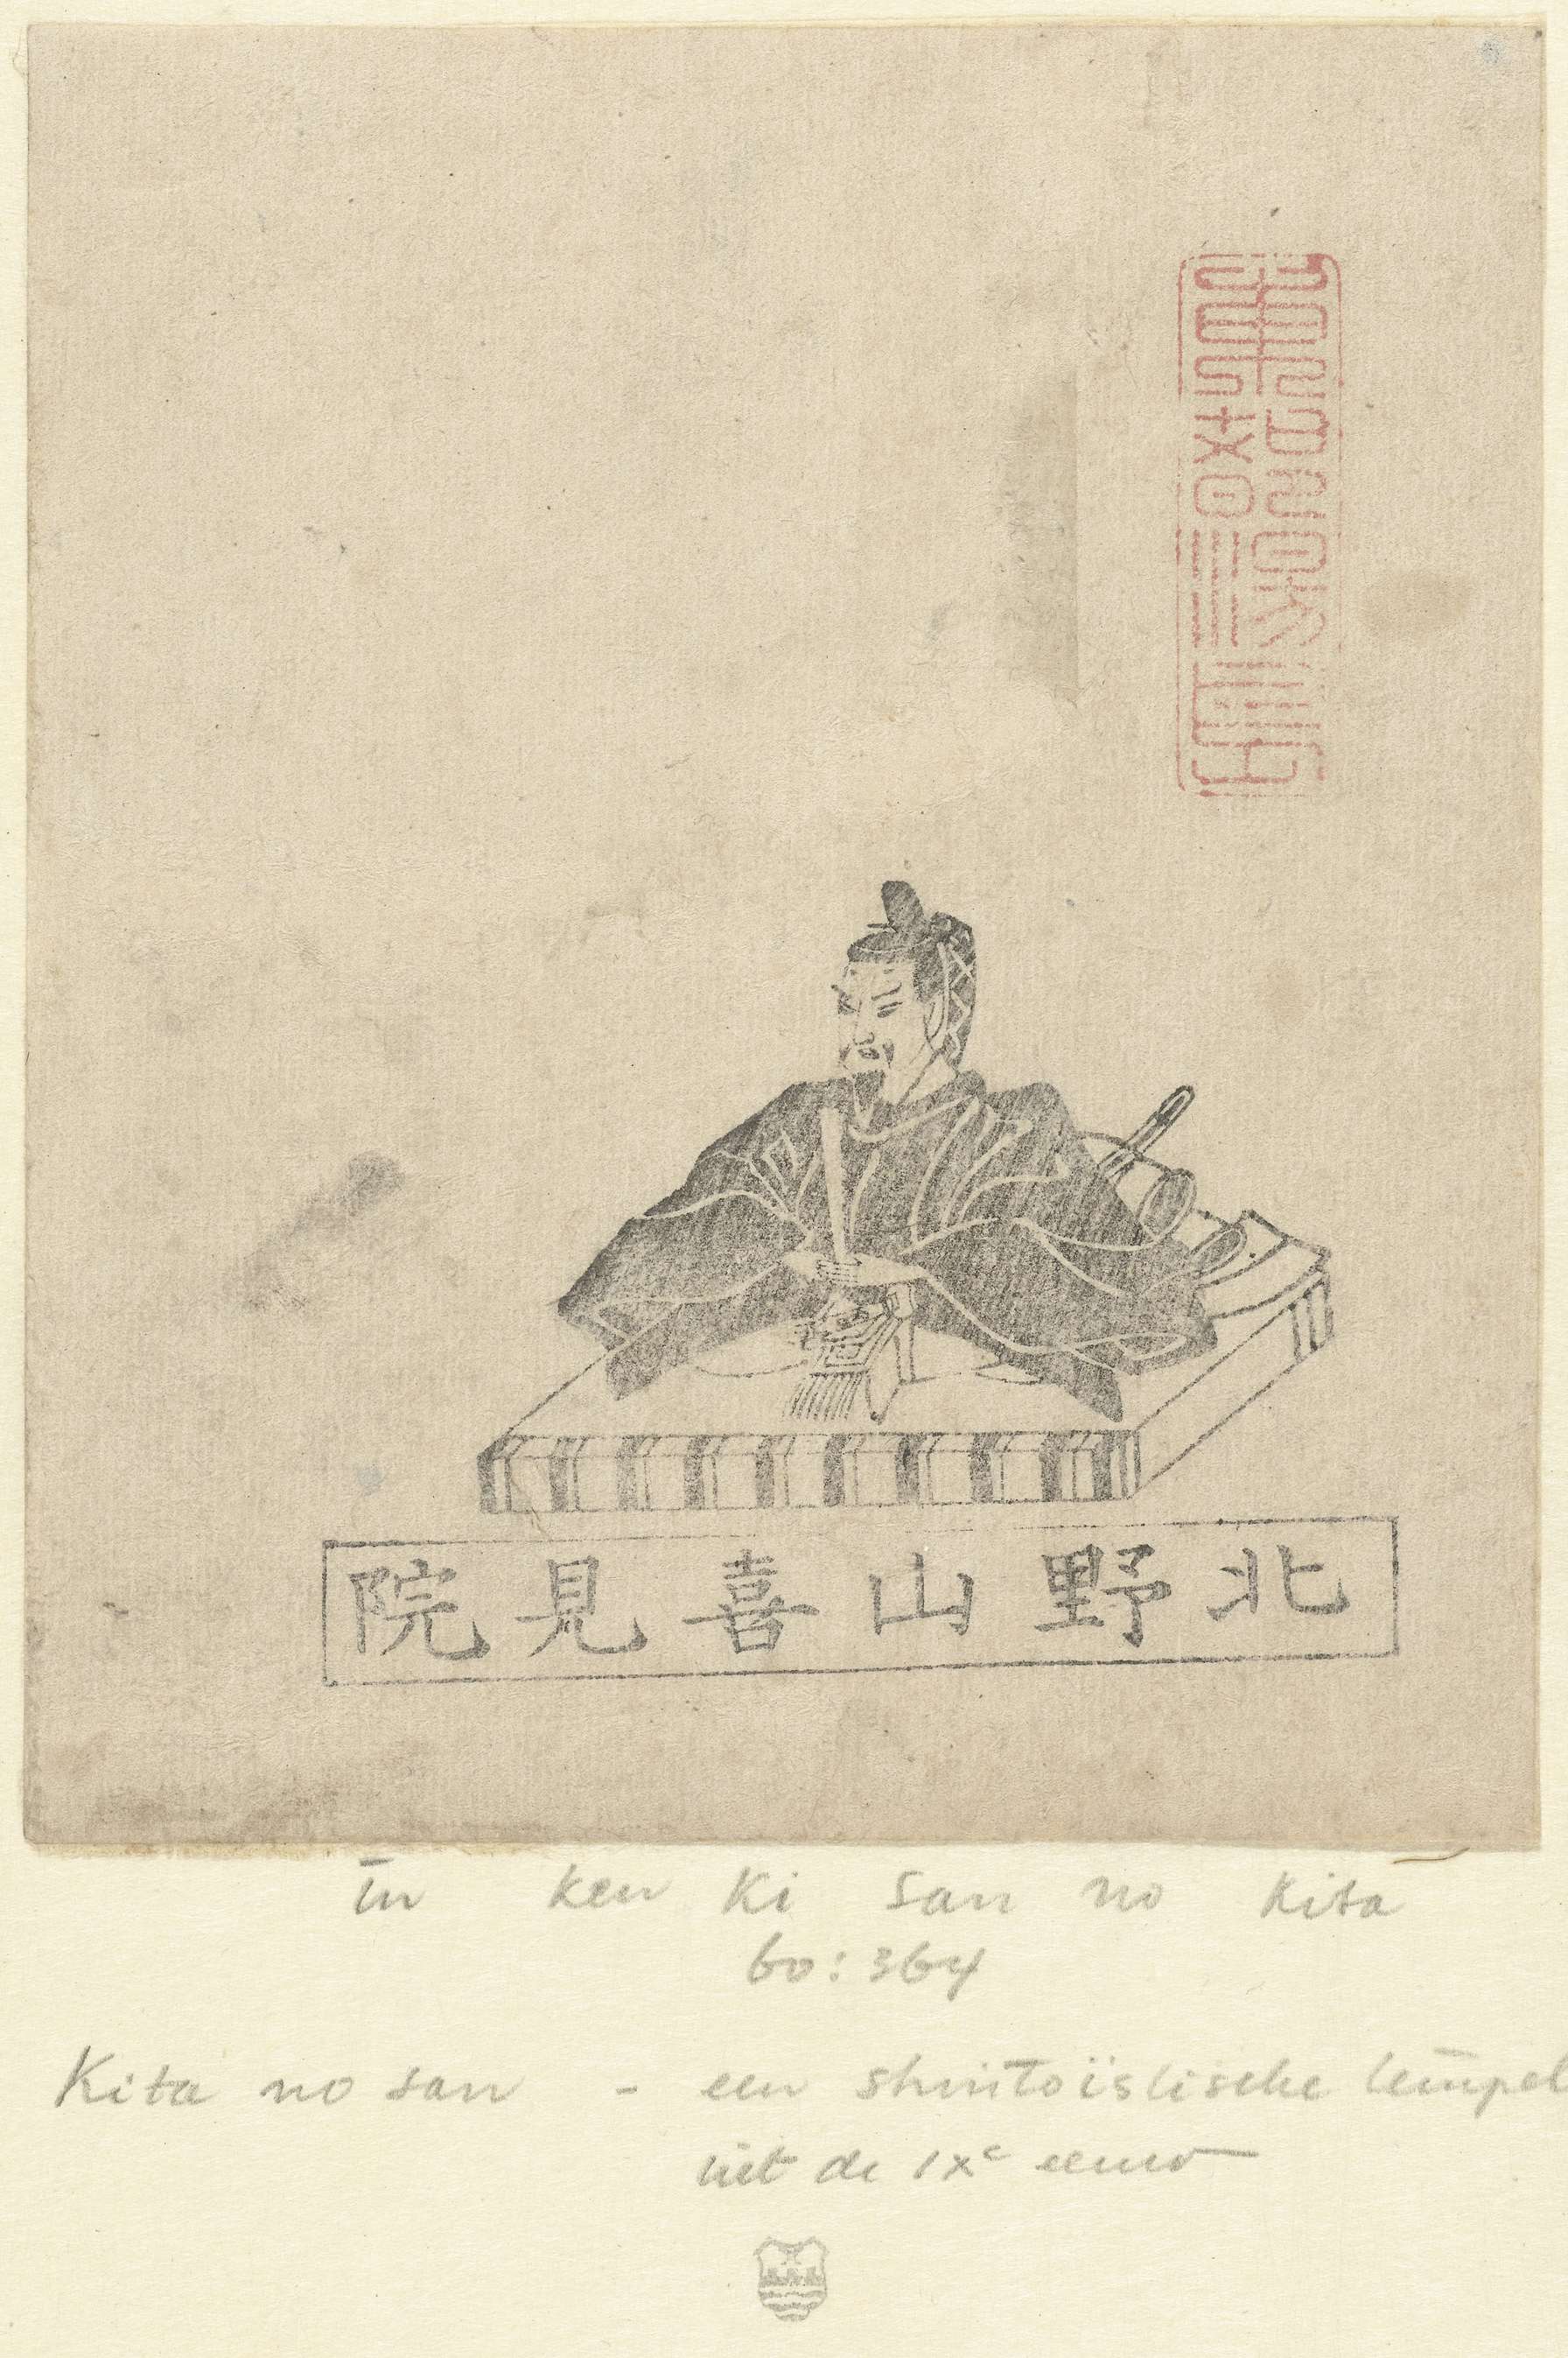 北野山喜見院
in ken Ki san no Kita
bo: 364
Kita no san - een shintoïstische tempel
uit de IXe eeuw